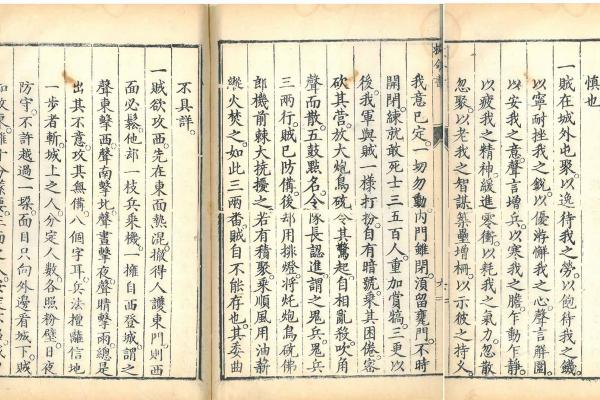 慎也
一賊在城外屯聚以逸待我之勞以飽待我之饑
以寧耐挫我之銳以優游懈我之心聲言解圍
以安我之意聲言增兵以寒我之膽乍動乍靜
以疲我之精神緩進零衝以耗我之氣力忽散
忽聚以老我之智謀築壘增柵以示彼之持久
我意已定一切勿動內門雖閉須留甕門不時
開閉練就敢死士三五百人重加賞犒三更以
後我軍與賊一樣打扮自有暗號乘其困倦容
砍其營放大炮鳥砲令其驚起自相亂殺吹角
聲而散五鼓點名令隊長認進謂之鬼兵鬼兵
三兩行賊已防備後却用排燈將炮鳥砲佛
郎機前棘大抗擾之若有積聚乘順風用油薪
縱火焚之如此三兩番賊自不能存也其委曲
不具詳
一賊欲攻西先在東面熱混撤得人護東門則西
面必鬆他却一枝兵乘機一擁自西登城謂之
聲東擊西聲南擊北聲晝擊夜聲晴擊雨總是
出其不意攻其無備八個字耳兵法擅離信地
一步者斬城上之人分定人數各照粉壁日夜
防守不許越過一垜面目只向外邊看城下賊